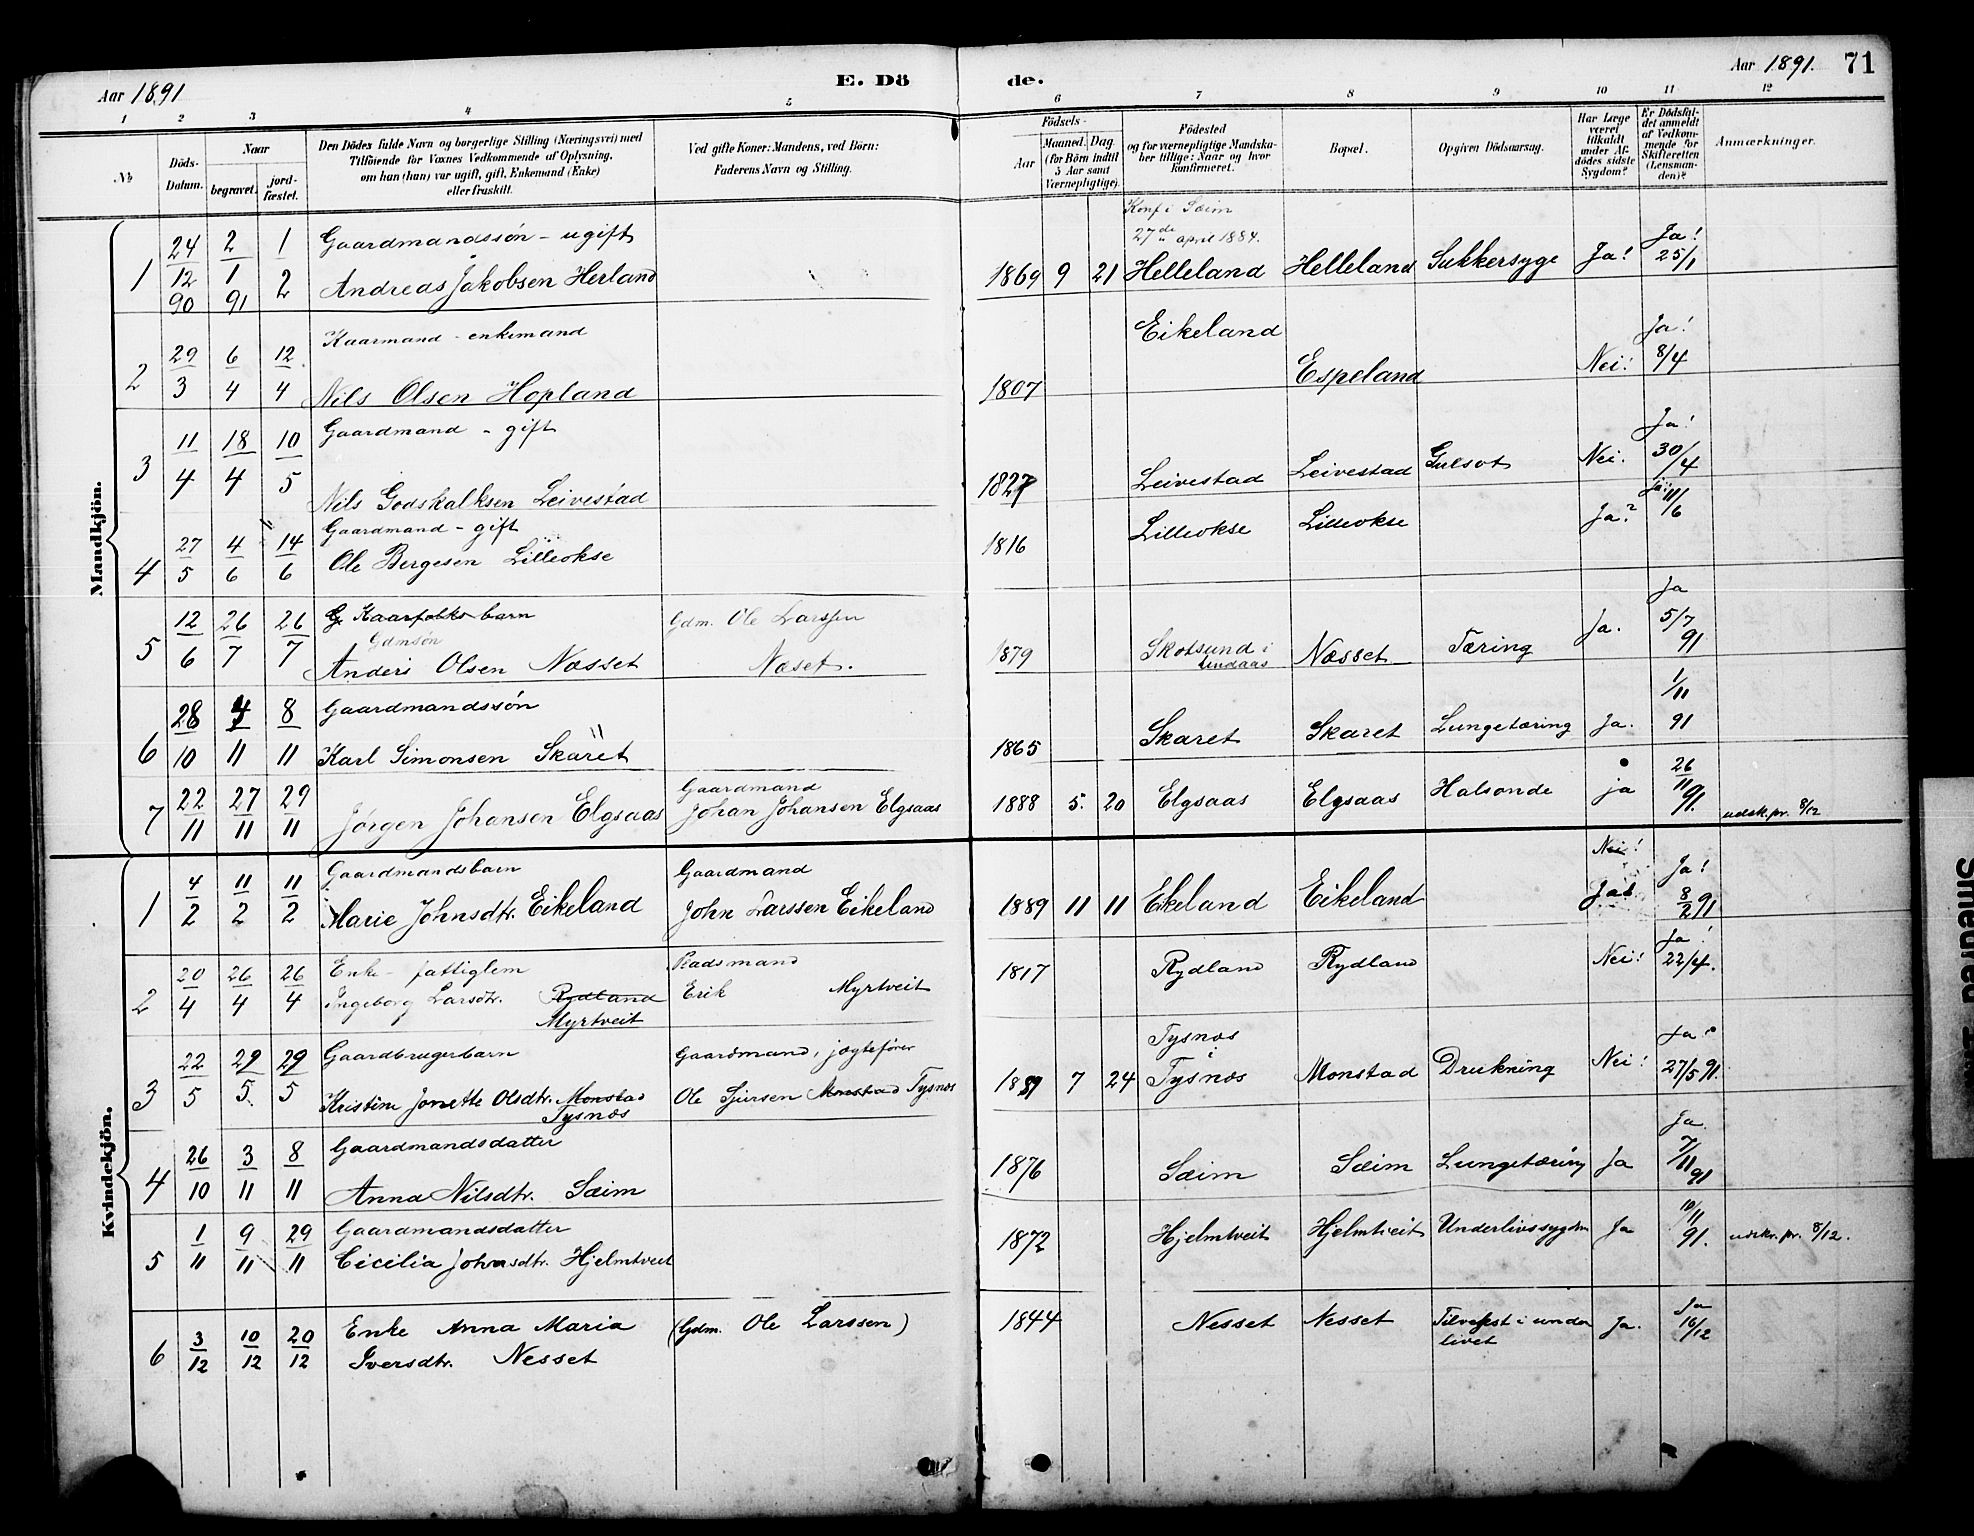 Aar 1891
E. Dö de.
Aar 1891. 71
1 2 3 4 5 6 7 8 9 10 11 12
No
Döds-Datum.
Naar
begravet.
jordfæstet.
Den Dödes fulde Navn og borgerlige Stilling (Næringsvei) med
Tilföiende for Voxnes Vedkommende af Oplysning,
om han (hun) var ugift, gift, Enkemand (Enke)
eller fraskilt.
Ved gifte Koner: Mandens, ved Börn:
Faderens Navn og Stilling.
Födsels-
Aar
Maaned. Dag.
(for Börn indtil
5 Aar samt
Værnepligtige).
Födested
og for værnepligtige Mandskaber tillige: Naar og hvor
Konfirmeret.
Bopæl.
Opgiven Dödsaarsag.
Har Læge
været
tilkaldt
under Afdödes sidste
Sygdom?
Er Dödsfaldet anmeldt
af Vedkommende for
Skifteretten
(Lensmanden)?
Anmærkninger.
Mandkjön.
Gaardmandssøn - ugift Konf i Sæim 27de april 1884.
1 24/12 90 2/1 91 1/2 Andreas Jakobsen Herland 1869 9 21 Helleland Helleland Sukkersyge Ja! Ja! 25/1
Kaarmand - enkemand
2 29/3 6/4 12/4 Nils Olsen Hopland 1807 Eikeland Espeland Nei! Ja! 8/4
Gaardmand - gift
3 11/4 18/4 10/5 Nils Godskalksen Leivestad 1827 Leivestad Leivestad Gulsot Nei. Ja! 30/4
Gaardmand - gift
4 27/5 4/6 14/6 Ole Bergesen Lilleokse 1816 Lilleokse Lilleokse Ja? ja! 11/6
G Kaarfolks barn Gdm. Ole Larssen
Gdmsøn
5 12/6 26/7 26/7 Anders Olsen Næsset Næset. 1879 Skotsund i Lindaas Næsset Tæring Ja. Ja 5/7 91
Gaardmandssøn
6 28/10 4/11 8/11 Karl Simonsen Skaret 1865 Skaret Skaret Lungetæring Ja. 1/11 91
Gaardmand
7 22/11 27/11 29/11 Jørgen Johansen Elgsaas Johan Johansen Elgsaas 1888 5. 20 Elgsaas Elgsaas Halsonde ja 26/11 91. udsk. pr. 8/12
Kvindekjön.
Gaardmandsbarn Gaardmand Nei!
1 4/2 11/2 11/2 Marie Johnsdtr. Eikeland John Larssen Eikeland 1889 11 11 Eikeland Eikeland Ja! Ja! 8/2 91
Enke - fattiglem Pladsmand
2 20/4 26/4 26/4 Ingeborg Larsdtr. Rydland Erik Myrtveit 1817 Rydland Rydland Nei! Ja! 22/4.
Myrtveit
Gaardbrugerbarn Gaardmand, jægtefører
3 22/5 29/5. 29/5 Kristine Jonette Olsdtr. Monstad Ole Sjursen Monstad Tysnæs 1889 7 24 Tysnæs i Tysnæs Monstad Drukning Nei! Ja! 27/5 91.
Tysnæs
Gaardmandsdatter
4 26/10 3/11 8/11 Anna Nilsdtr. Sæim 1876 Sæim Sæim Lungetæring Ja Ja. 7/11 91
Gaardmandsdatter
5 1/11 9/11 29/11 Cicilia Johnsdtr. Hjelmtveit 1872 Hjelmtveit Hjelmtveit Underlivssygdm Ja 10/11 91. udskr. pr. 8/12.
6 3/12 10/12 20/12 Enke Anna Maria (Gdm. Ole Larssen) 1844 Nesset Nesset Tilvekst i underlivet Ja. Ja 16/12
Iversdtr. Nesset